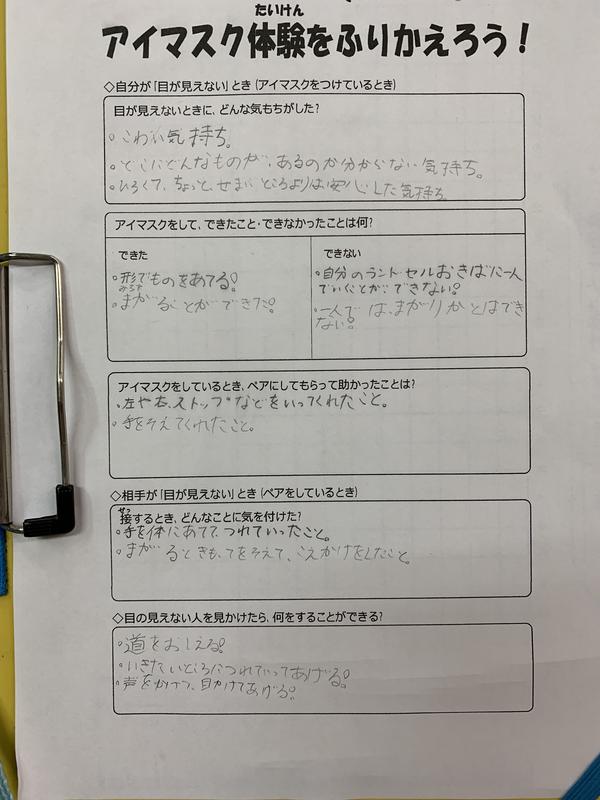 たいけん
アイマスク体験をふりかえろう!
◇自分が「目が見えない」とき(アイマスクをつけているとき)
目が見えないときに、どんな気もちがした?
・こわい気持ち。
・どこにどんなものが、あるのか分からない気持ち。
・ひろくて、ちょっと、せまいところよりは安心した気持ち
アイマスクをして、できたこと・できなかったことは何?
できた
・形でものをあてる!
・まがることができた!
できない
・自分のランドセルおきばに一人
でいくことができない!
・一人では、まがりかどはでき
ない!
アイマスクをしているとき、ペアにしてもらって助かったことは?
・左や右、ストップなどをいってくれたこと。
・手をそえてくれたこと。
◇相手が「目が見えない」とき(ペアをしているとき)
せっ
接するとき、どんなことに気を付けた?
・手を体にあてて、つれていったこと。
・まがるときも、てをそえて、こえかけをしたこと。
◇目の見えない人を見かけたら、何をすることができる?
・道をおしえる!
・いきたいところにつれていってあげる!
・声をかけて、目かけてあげる!